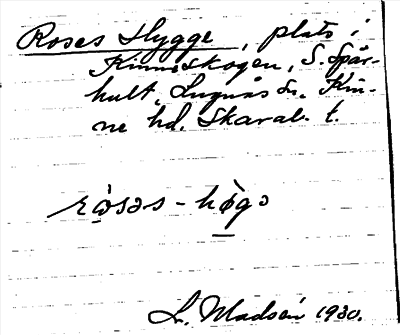 Roses Hygge, plats i
Kinneskogen, S. Spår-
hult, Lugnås sn. Kin-
ne hd. Skarab. l.
rọ̀səs - hø̀gə
L. Madsén 1930.